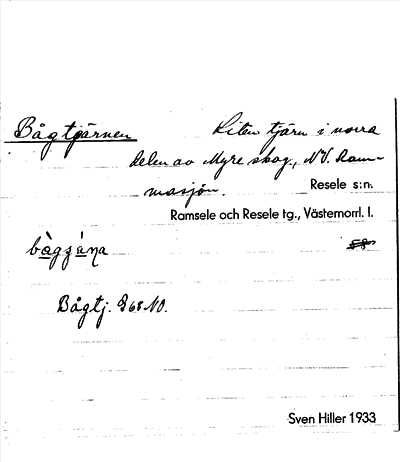 Bågtjärnen
Liten tjärn i norra
delen av Myre skog, NV. Ram-
masjön. Resele s:n.
Ramsele och Resele tg., Västernorrl. l.
Bågtj. 968 NO.
Sven Hiller 1933